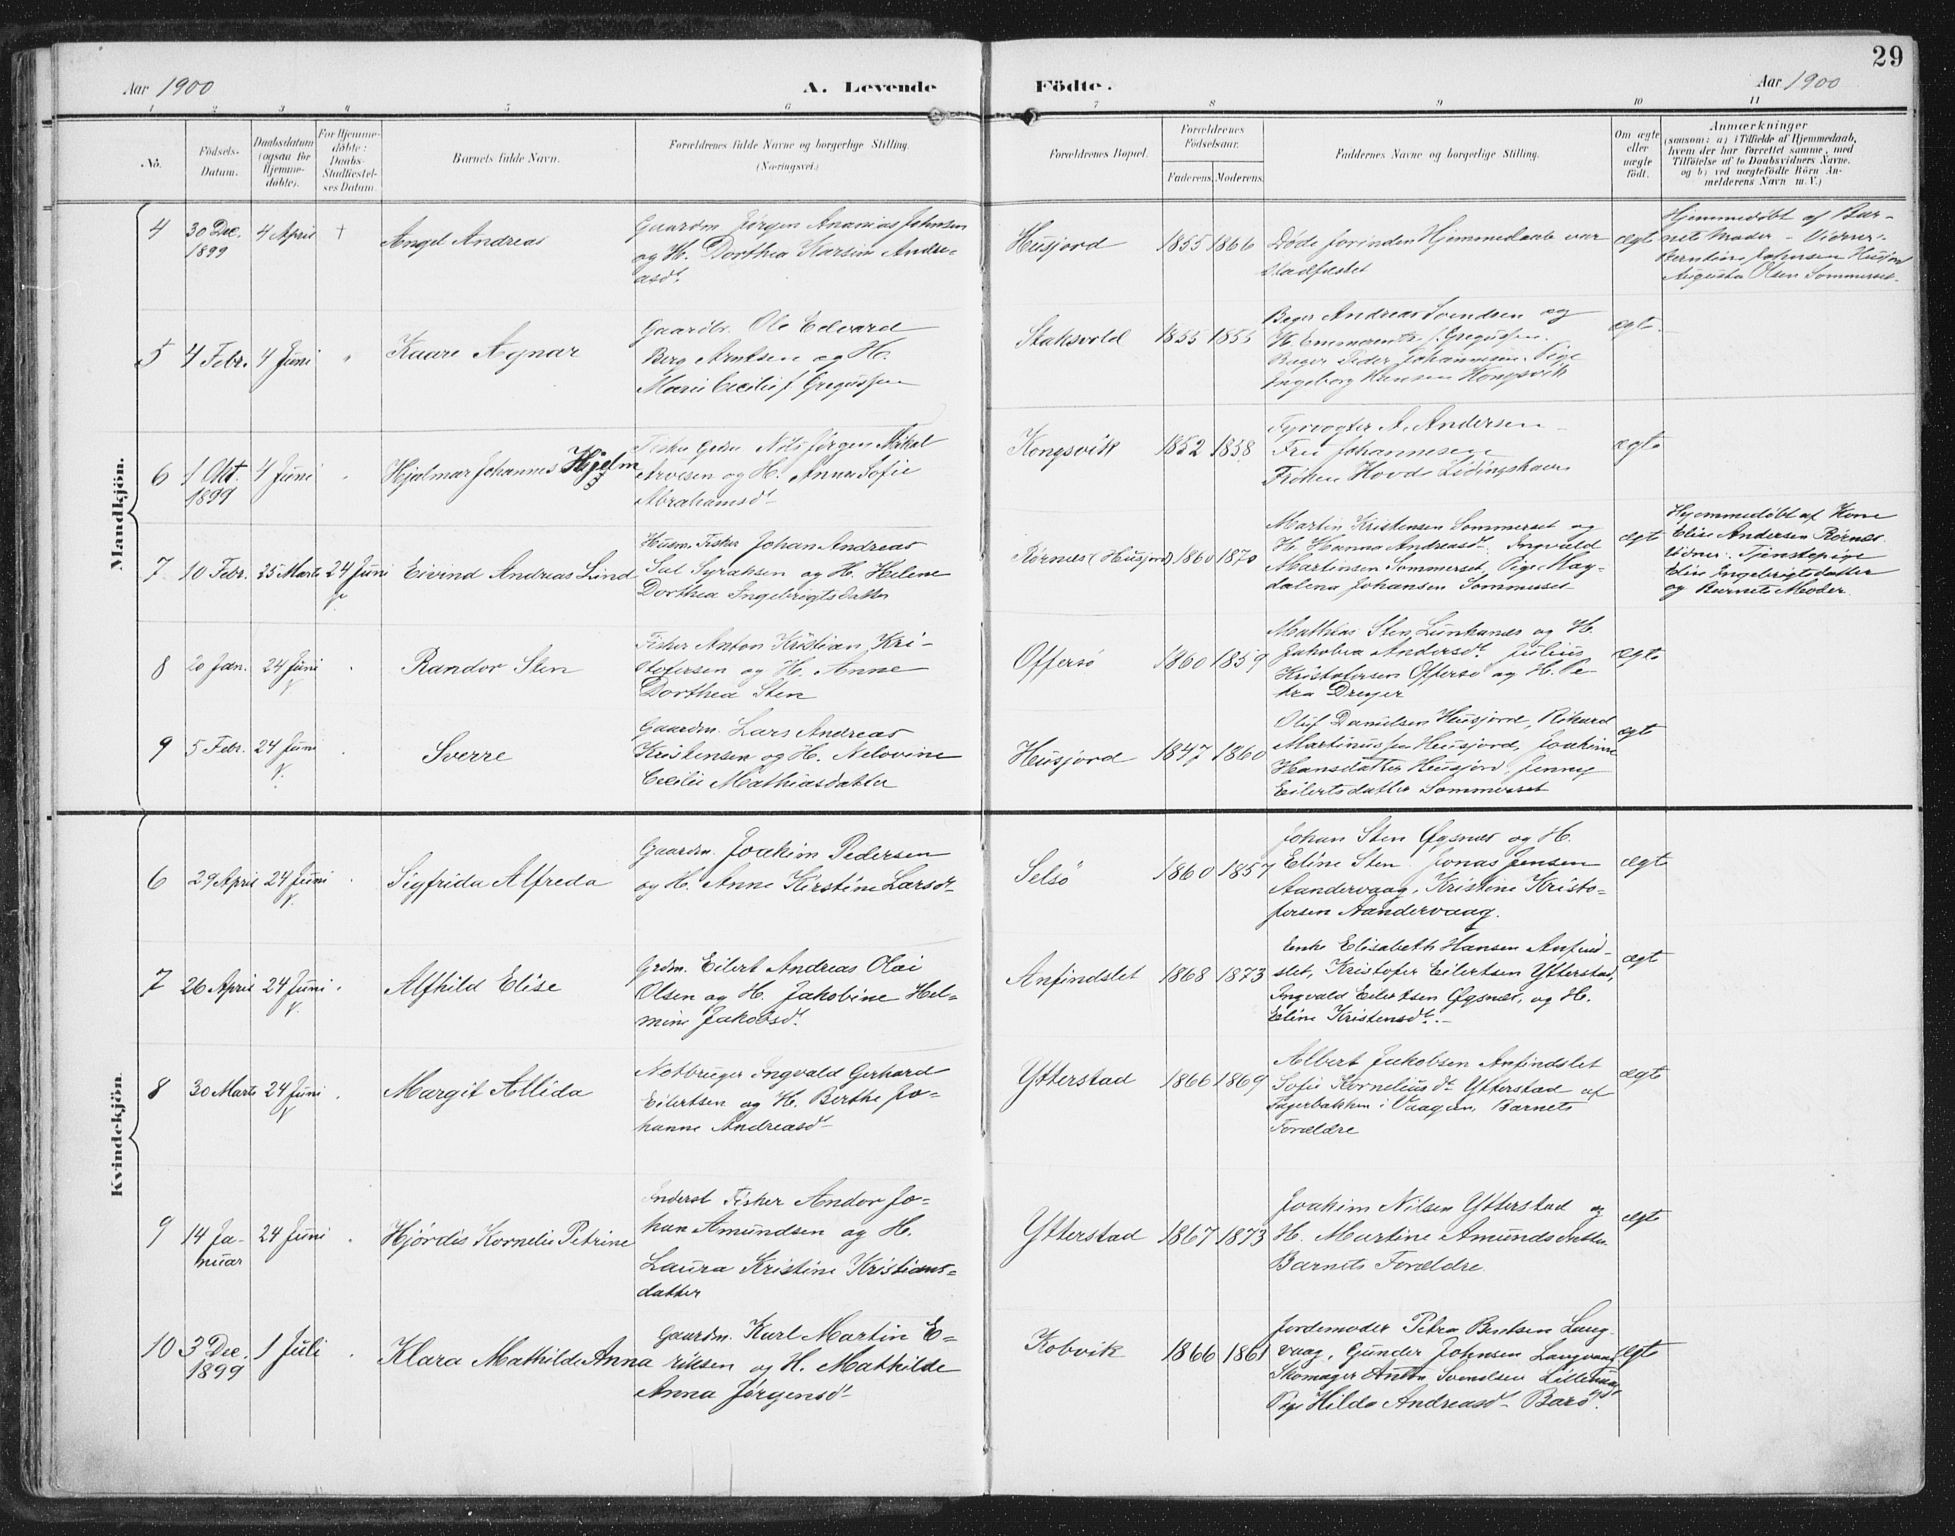 Aar 1900
A. Levende
Födte.
Aar 1900
29
1 2 3 4 5 6 7 8 9 10 11
No.
Födsels-
Datum.
Daabsdatum
(ogsaa for
Hjemme-
döbte).
For Hjemme-
döbte:
Daabs-
Stadfæstel-
ses Datum.
Barnets fulde Navn.
Forældrenes fulde Navne og borgerlige Stilling.
(Næringsvei.)
Forældrenes Bopæl.
Forældrenes
Födselsaar.
Faderens.
Moderens.
Faddernes Navne og borgerlige Stilling.
Om ægte
eller
uægte
födt.
Anmærkninger
(saasom: a) i Tilfælde af Hjemmedaab,
hvem der har forrettet samme, med
Tilföielse af to Daabsvidners Navne.
og b) ved uægtefödte Börn An-
melderens Navn m. V.)
Mandkjön.
4
30 Dec.
1899
4 April
+
Angel Andreas
Gaardm. Jørgen Ananias Johnsen
og H. Dorthea Karsine Andre-
asdt.
Husjord
1855
1866
Døde forinden Hjemmedaab var
stadfæstet
ægte
Hjemmedøbt af Bar-
nets Moder - Vidner:
Berntine Johnsen Husjord
Augusta Olsen Sommerset.
5
4 Febr.
4 Juni
"
Kaare Agnar
Gaardbr. Ole Edvard
Berg Arntsen og H.
Marie Cecilie f. Gregussen
Staksvold
1855
1855
Andreas Svendsen og
H. f. Gregussen.
Peder Johannesen. Pige
Ingeborg Hansen Kongsvik
ægte.
6
1 Okt.
1899
4 Juni
"
Hjalmar Johannes Hjelm
Fisker Nils Jørgen Mikal
Arvesen og H. Anna Sofie
Abrahamsdt.
Kongsvik
1852
1858
Fyrvogter A. Andersen
Johannesen
Frøken Hovde Lødingshavn
ægte
7
10 Febr.
25 Marts
24 Juni
Eivind Andreas Lund
Husm. Fisker Johan Andreas
Sal Syraksen og H. Helene
Dorthea Ingebrigtsdatter
Rørnes (Husjord)
1860
1870
Martin Kristensen Sommerset og
H. Hanna Andreasdt. Ingvald
Martinsen Sommerset, Pige Mag-
dalena Johansen Sommerset
ægte
Hjemmedøbt af Kone
Elise Andersen Rørnes
Vidner: Tjenstepige
Elise Ingebrigtsdatter
og Barnets Moder.
8
20 Jan.
24 Juni
"
Randor Sten
Fisker Anton Kristian Kri-
stofersen og H. Anne
Dorthea Sten
Offersø
1860
1859
Mathias Sten, Lunhanes og H.
Jakobea Andersdt. Julius
Kristofersen Offersø og H. Pe-
tra Dreyer
ægte
9
5 Febr.
24 Juni
"
Sverre
Gaardm. Lars Andreas
Kristensen og H. Nelovine
Cecilie Mathiasdatter
Husjord
1847
1860
Oluf Danielsen Husjord, Rikard
Martinussen Husjord, Joakime
Hansdatter Husjord, Jenny
Eilertsdatter Sommerset
ægte
Kvindekjön.
6
29 April
24 Juni
"
Sigfrida Alfreda
Gaardm. Joakim Pedersen
og H. Anne Kirstine Larsdt.
Selsö
1860
1857
Johan Sten Øgsnes og H.
Eline Sten. Jonas Jensen
Aandervaag, Kristine Kristo-
fersen Aandervaag.
ægte
7
26 April
24 Juni
"
Alfhild Elise
Grdm. Eilert Andreas Olai
Olsen og H. Jakobine Hel-
mine Jakobsdt.
Anfindslet
1868
1873
Enke Elisabeth Hansen Anfind-
slet, Kristofer Eilertsen Ytterstad,
Ingvald Eilertsen Øgsnes, og H.
Eline Kristensdt.
ægte
8
30 Marts
24 Juni
"
Margit Allida
Notbruger Ingvald Gerhard
Eilertsen og H. Berthe Jo-
hanne Andreasdt.
Ytterstad
1866
1869
Albert Jakobsen Anfindslet
Sofie Korneliusdt. Ytterstad af
i Vaagen, Barnets
Forældre
ægte
9
14 Ja-
nuar
24 Juni
"
Hjördis Kornelie Petrine
Inderst Fisker Andor Jo-
han Amundsen og H.
Laura Kristine Kristians-
datter
Ytterstad
1867
1873
Joakim Nilsen Ytterstad og
H. Martine Amundsdatter
Barnets Forældre.
ægte
10
3 Dec.
1899
1 Juli
"
Klara Mathilde Anna
Gaardm. Karl Martin E-
riksen og H. Mathilde
Anna Jørgensdt.
Kobvik
1866
1861
Jordemoder Petra Bentsen Lang-
vaag, Gunder Johnsen Langvaag
Skomager Anton Svendsen
Pige Hilda Andreasdt. Barø.
ægte